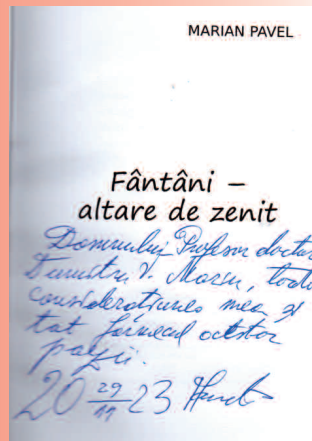 MARIAN PAVEL
Fântâni –
altare de zenit
Domnului Profesor doctor
Dumitru V. Marin, toată
considerațiunea mea și
tot farmecul acestor
pagini.
20 29/11 23